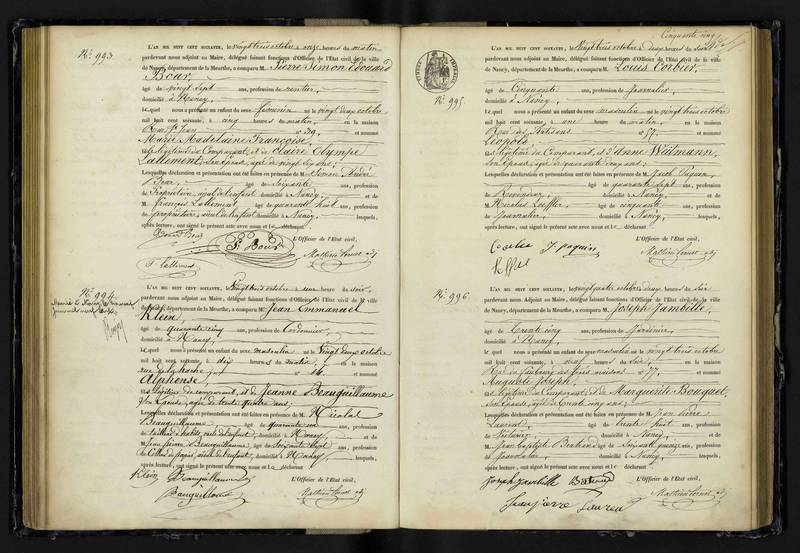 N.º 993
L'AN MIL HUIT CENT SOIXANTE, le vingt trois octobre à onze heures du matin
pardevant nous adjoint au Maire, délégué faisant fonctions d'Officier de l'Etat civil de la ville
de Nancy, département de la Meurthe, a comparu M. Pierre Simon Edouard
Bour,
âgé de vingt sept ans, profession de rentier,
domicilié à Nancy
lequel nous a présenté un enfant du sexe féminin né le vingt deux octobre
mil huit cent soixante, à cinq heures du matin, en la maison
Rue St Jean n° 39, et nommé
Marie Madelaine Françoise,
fille légitime du Comparant, et de Claire Olympe
Lallement, son épouse, âgée de vingt six ans;
Lesquelles déclaration et présentation ont été faites en présence de M. Simon André
Bour, âgé de soixante ans, profession
de Propriétaire, ayeul de l'enfant domicilié à Nancy et de
M. François Lallement, âgé de quarante huit ans, profession
de propriétaire, aïeul de l'enfant domicilié à Nancy lesquels,
après lecture, ont signé le présent acte avec nous et le déclarant
L'Officier de l'Etat civil,
P. Bour
F. Lallement
N.º 994
L'AN MIL HUIT CENT SOIXANTE, le Vingt trois octobre à une heure du soir
pardevant nous adjoint au Maire, délégué faisant fonctions d'Officier de l'Etat civil de la ville
de Nancy, département de la Meurthe, a comparu M. Jean Emmanuel
Klein,
âgé de quarante cinq ans, profession de Cordonnier
domicilié à Nancy
lequel nous a présenté un enfant du sexe masculin né le Vingt deux octobre
mil huit cent soixante, à dix heures du matin, en la maison
rue n° 16, et nommé
Alphonse,
fils légitime du comparant, et de Jeanne Beauguillaume
son épouse, âgée de trente quatre ans;
Lesquelles déclaration et présentation ont été faites en présence de M. Nicolas
Beauguillaume âgé de quarante un ans, profession
de tailleur d'habits, domicilié à Nancy et de
M. Jean Pierre Beauguillaume, âgé de soixante sept ans, profession
domicilié à Nancy lesquels,
après lecture, ont signé le présent acte avec nous et le déclarant
L'Officier de l'Etat civil,
Klein Beauguillaume
Cinquante cinq
N.º 995
L'AN MIL HUIT CENT SOIXANTE, le vingt trois octobre à deux heures du soir
pardevant nous adjoint au Maire, délégué faisant fonctions d'Officier de l'Etat civil de la ville
de Nancy, département de la Meurthe, a comparu M. Louis Corbier,
âgé de Cinquante ans, profession de Journalier
domicilié à Nancy,
lequel nous a présenté un enfant du sexe masculin né le vingt trois octobre
mil huit cent soixante, à une heure du matin, en la maison
Rue des Artisans n° 57, et nommé
Léopold,
fils légitime du Comparant, et d'Anne Weitmann,
son épouse, âgée de quarante deux ans;
Lesquelles déclaration et présentation ont été faites en présence de M. Jacob Paquin,
âgé de quarante sept ans, profession
de domicilié à Nancy, et de
M. Nicolas Loeffler, âgé de cinquante ans, profession
de journalier, domicilié à Nancy, lesquels,
après lecture, ont signé le présent acte avec nous et le déclarant
L'Officier de l'Etat civil,
J paquin
N.º 996
L'AN MIL HUIT CENT SOIXANTE, le vingt quatre octobre à deux heures du soir
pardevant nous adjoint au Maire, délégué faisant fonctions d'Officier de l'Etat civil de la ville
de Nancy, département de la Meurthe, a comparu M. Joseph Jambille,
âgé de trente cinq ans, profession de Jardinier,
domicilié à Nancy,
lequel nous a présenté un enfant du sexe masculin né le vingt trois octobre
mil huit cent soixante, à neuf heures du soir, en la maison
Rue du faubourg des trois maisons n° 77, et nommé
Auguste Joseph,
fils légitime du Comparant, et de Marguerite Bouquet,
son épouse, âgée de trente cinq ans;
Lesquelles déclaration et présentation ont été faites en présence de M. Jean Pierre
Laurent, âgé de trente huit ans, profession
de domicilié à Nancy et de
M. Jean Baptiste Bertrand âgé de soixante quinze ans, profession
de Journalier domicilié à Nancy lesquels,
après lecture, ont signé le présent acte avec nous et le déclarant
L'Officier de l'Etat civil,
Joseph Jambille Bertrand
Jean pierre Lauren